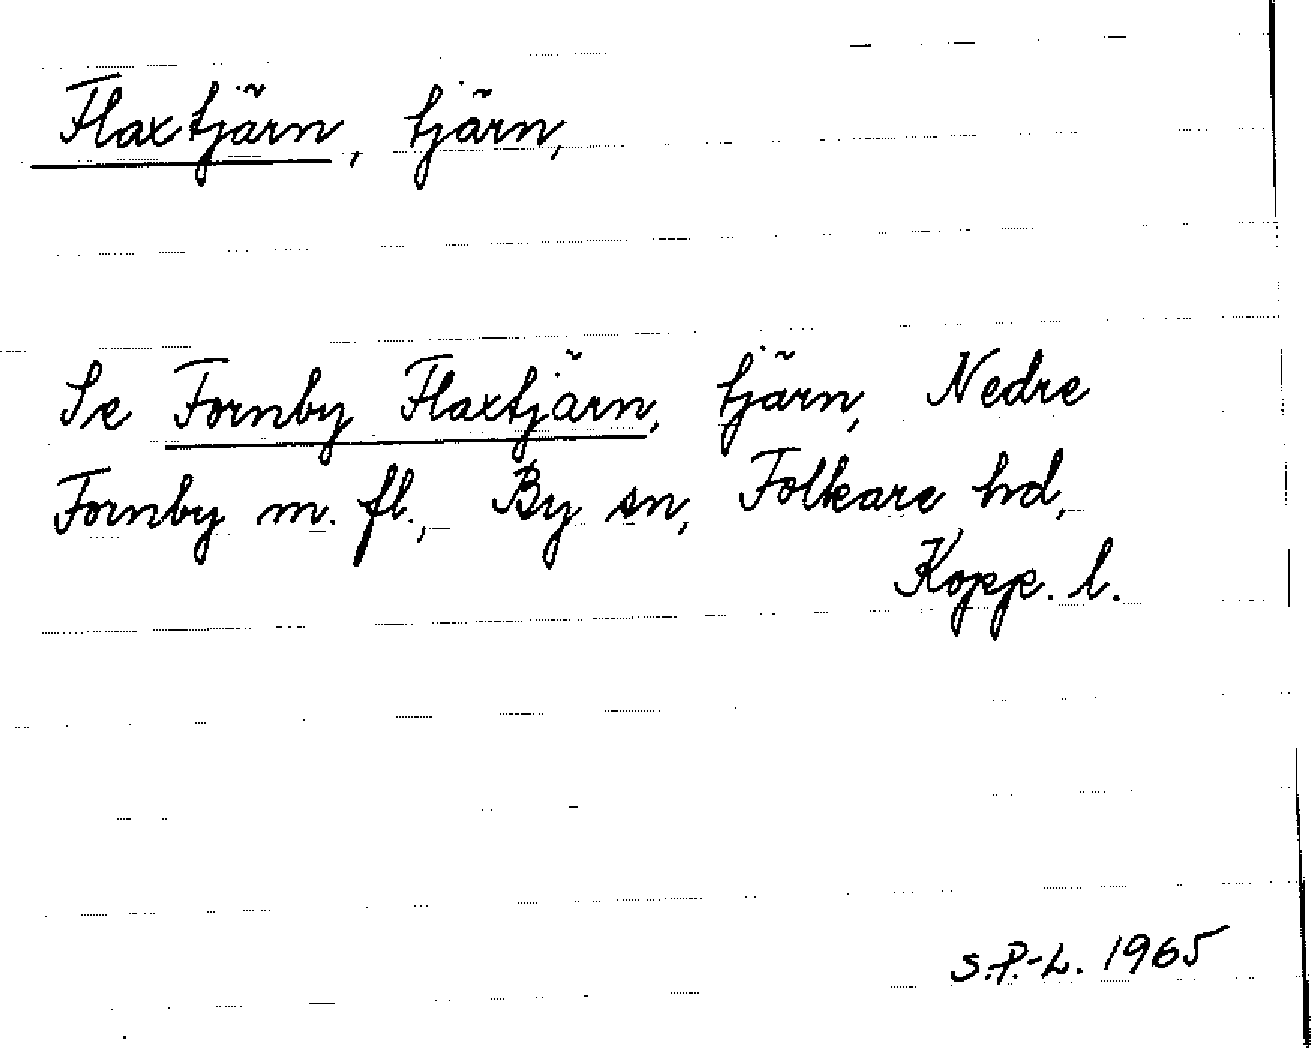 Flaxtjärn, tjärn,
Se Fornby Flaxtjärn, tjärn, Nedre
Fornby m. fl., By sn, Folkare hd,
Kopp. l.
S.P.-L. 1965